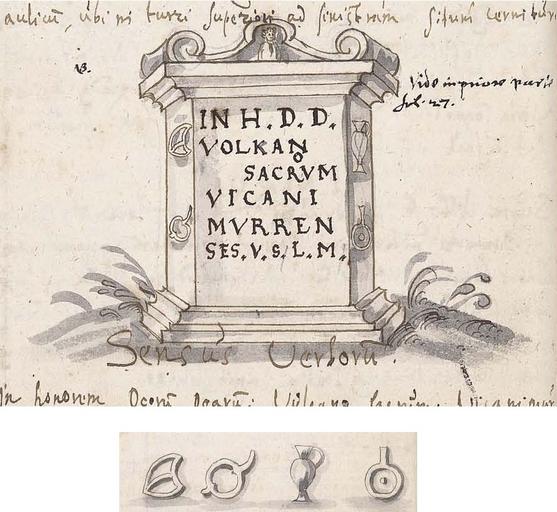 aulicum, ubi in turri superiori ad sinistram situm cernitur
B.
Vide in priore parte
fol. 27.
IN H. D. D.
VOLKANO
SACRVM
VICANI
MVRREN
SES. V. S. L. M.
Sensus Verborū.
In honorem Deorū Dearū; Vulcano Sacrum. Vicani